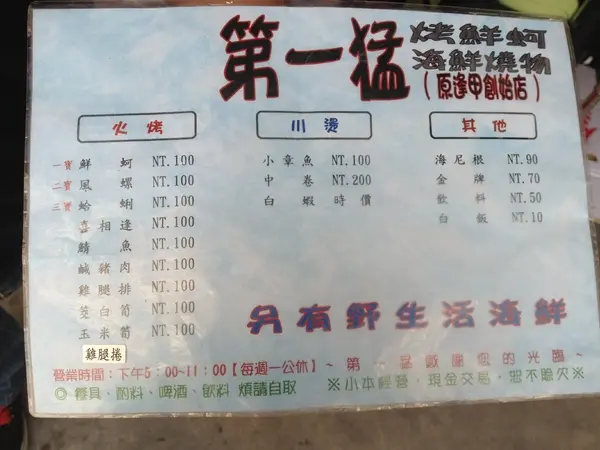 第一猛
海鮮燒物
(原逢甲創始店)
火烤
一寶 鮮蚵 NT.100
二寶 風螺 NT.100
三寶 蛤蜊 NT.100
喜相逢 NT.100
鯖魚 NT.100
鹹豬肉 NT.100
雞腿排 NT.100
茭白筍 NT.100
玉米筍 NT.100
雞腿捲
川燙
小章魚 NT.100
中卷 NT.200
白蝦 時價
其他
海尼根 NT.90
金牌 NT.70
飲料 NT.50
白飯 NT.10
只有野生活海鮮
營業時間:下午5:00~11:00【每週一公休】~第一猛感謝您的光臨~
◎餐具、酌料、啤酒、飲料 煩請自取 ※小本經營,現金交易,恕不賒欠※